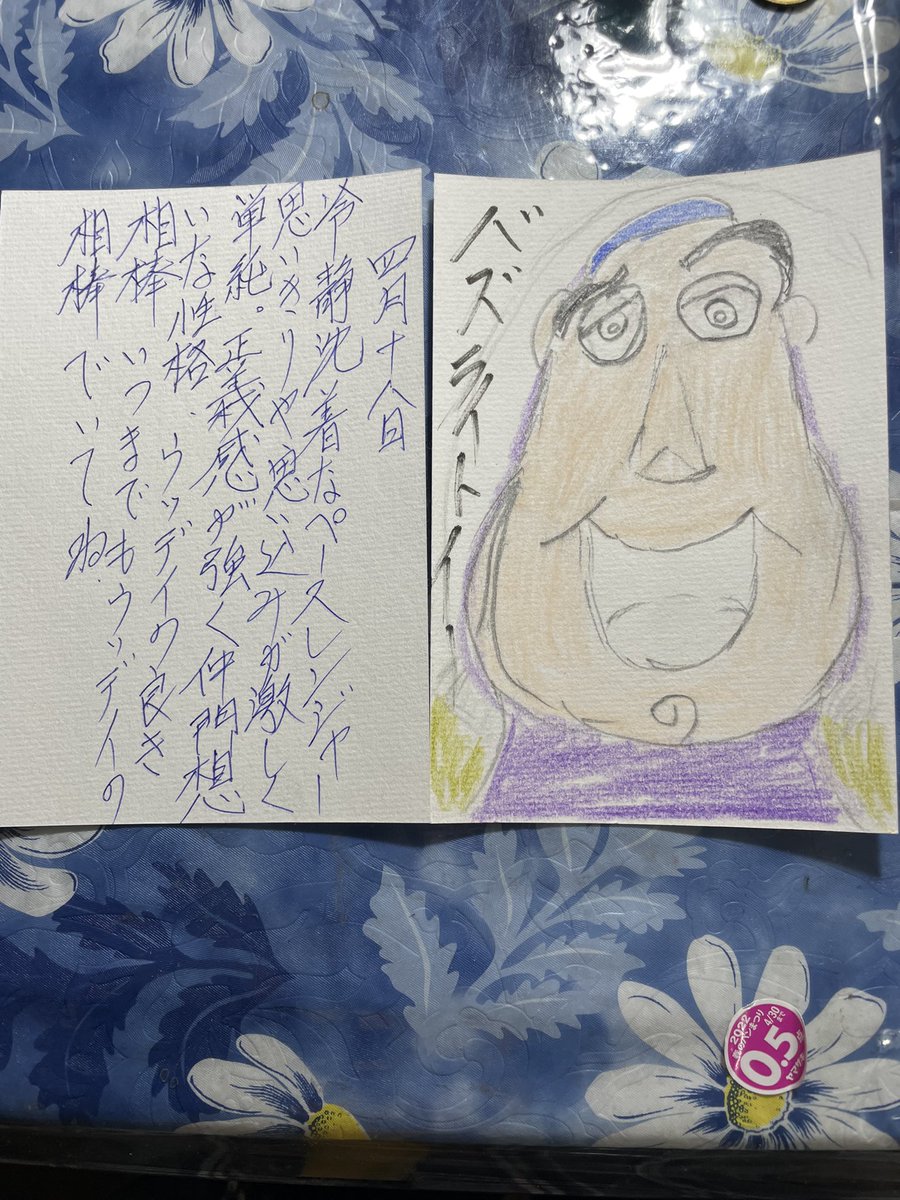 バズライトイヤー
四月十八日
冷静沈着なペースレンジャー
思いきりや思い込みが激しく
単純。正義感が強く仲間想
いな性格、ウッディの良き
相棒 いつまでもウッディの
相棒 でいてね。
2022
春のパンまつり
4/30まで
0.5点
ヤマザキ